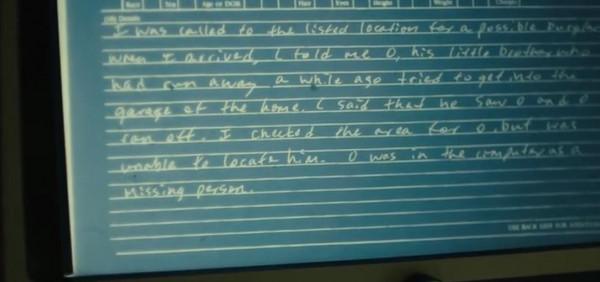 Race Sex Age or DOB Hair Eyes Height Weight
Details
I was called to the listed location for a possible
when I arrived, L told me O, his little brother who
had run away a while ago tried to get into the
garage of the home. L said that he saw O and O
ran off. I checked the area for O, but was
unable to locate him. O was in the computer as a
Missing person.
USE BACK SIDE FOR